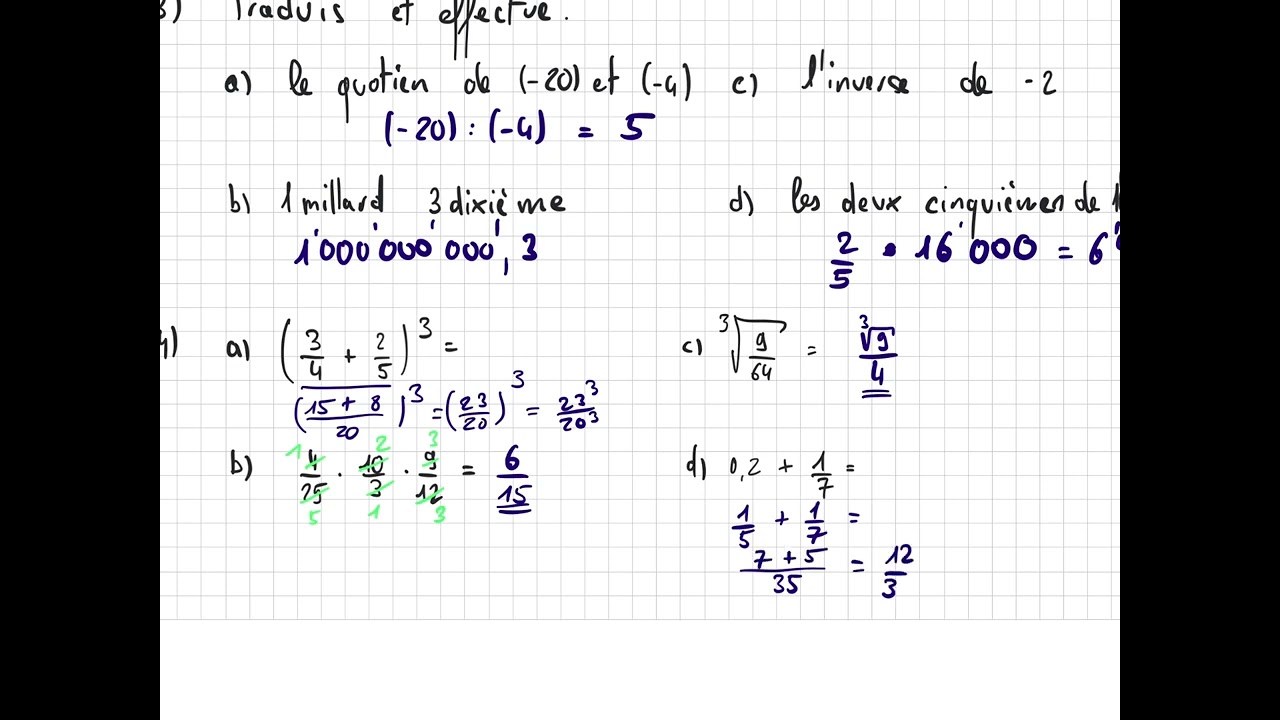 3) Traduis et effectue.
a) le quotien de (-20) et (-4) c) l'inverse de -2
(-20) : (-4) = 5
b) 1 millard 3 dixième d) les deux cinquièmes de 1
1'000'000'000, 3 2/5 • 16'000 = 6'
4) a) (3/4 + 2/5)^3 = c) ∛(9/64) = ∛9/4
((15 + 8)/20)^3 = (23/20)^3 = 23^3/20^3
b) 4/25 · 10/3 · 9/12 = 6/15 d) 0,2 + 1/7 =
1 2 3
5 1 3
1/5 + 1/7 =
(7 + 5)/35 = 12/3